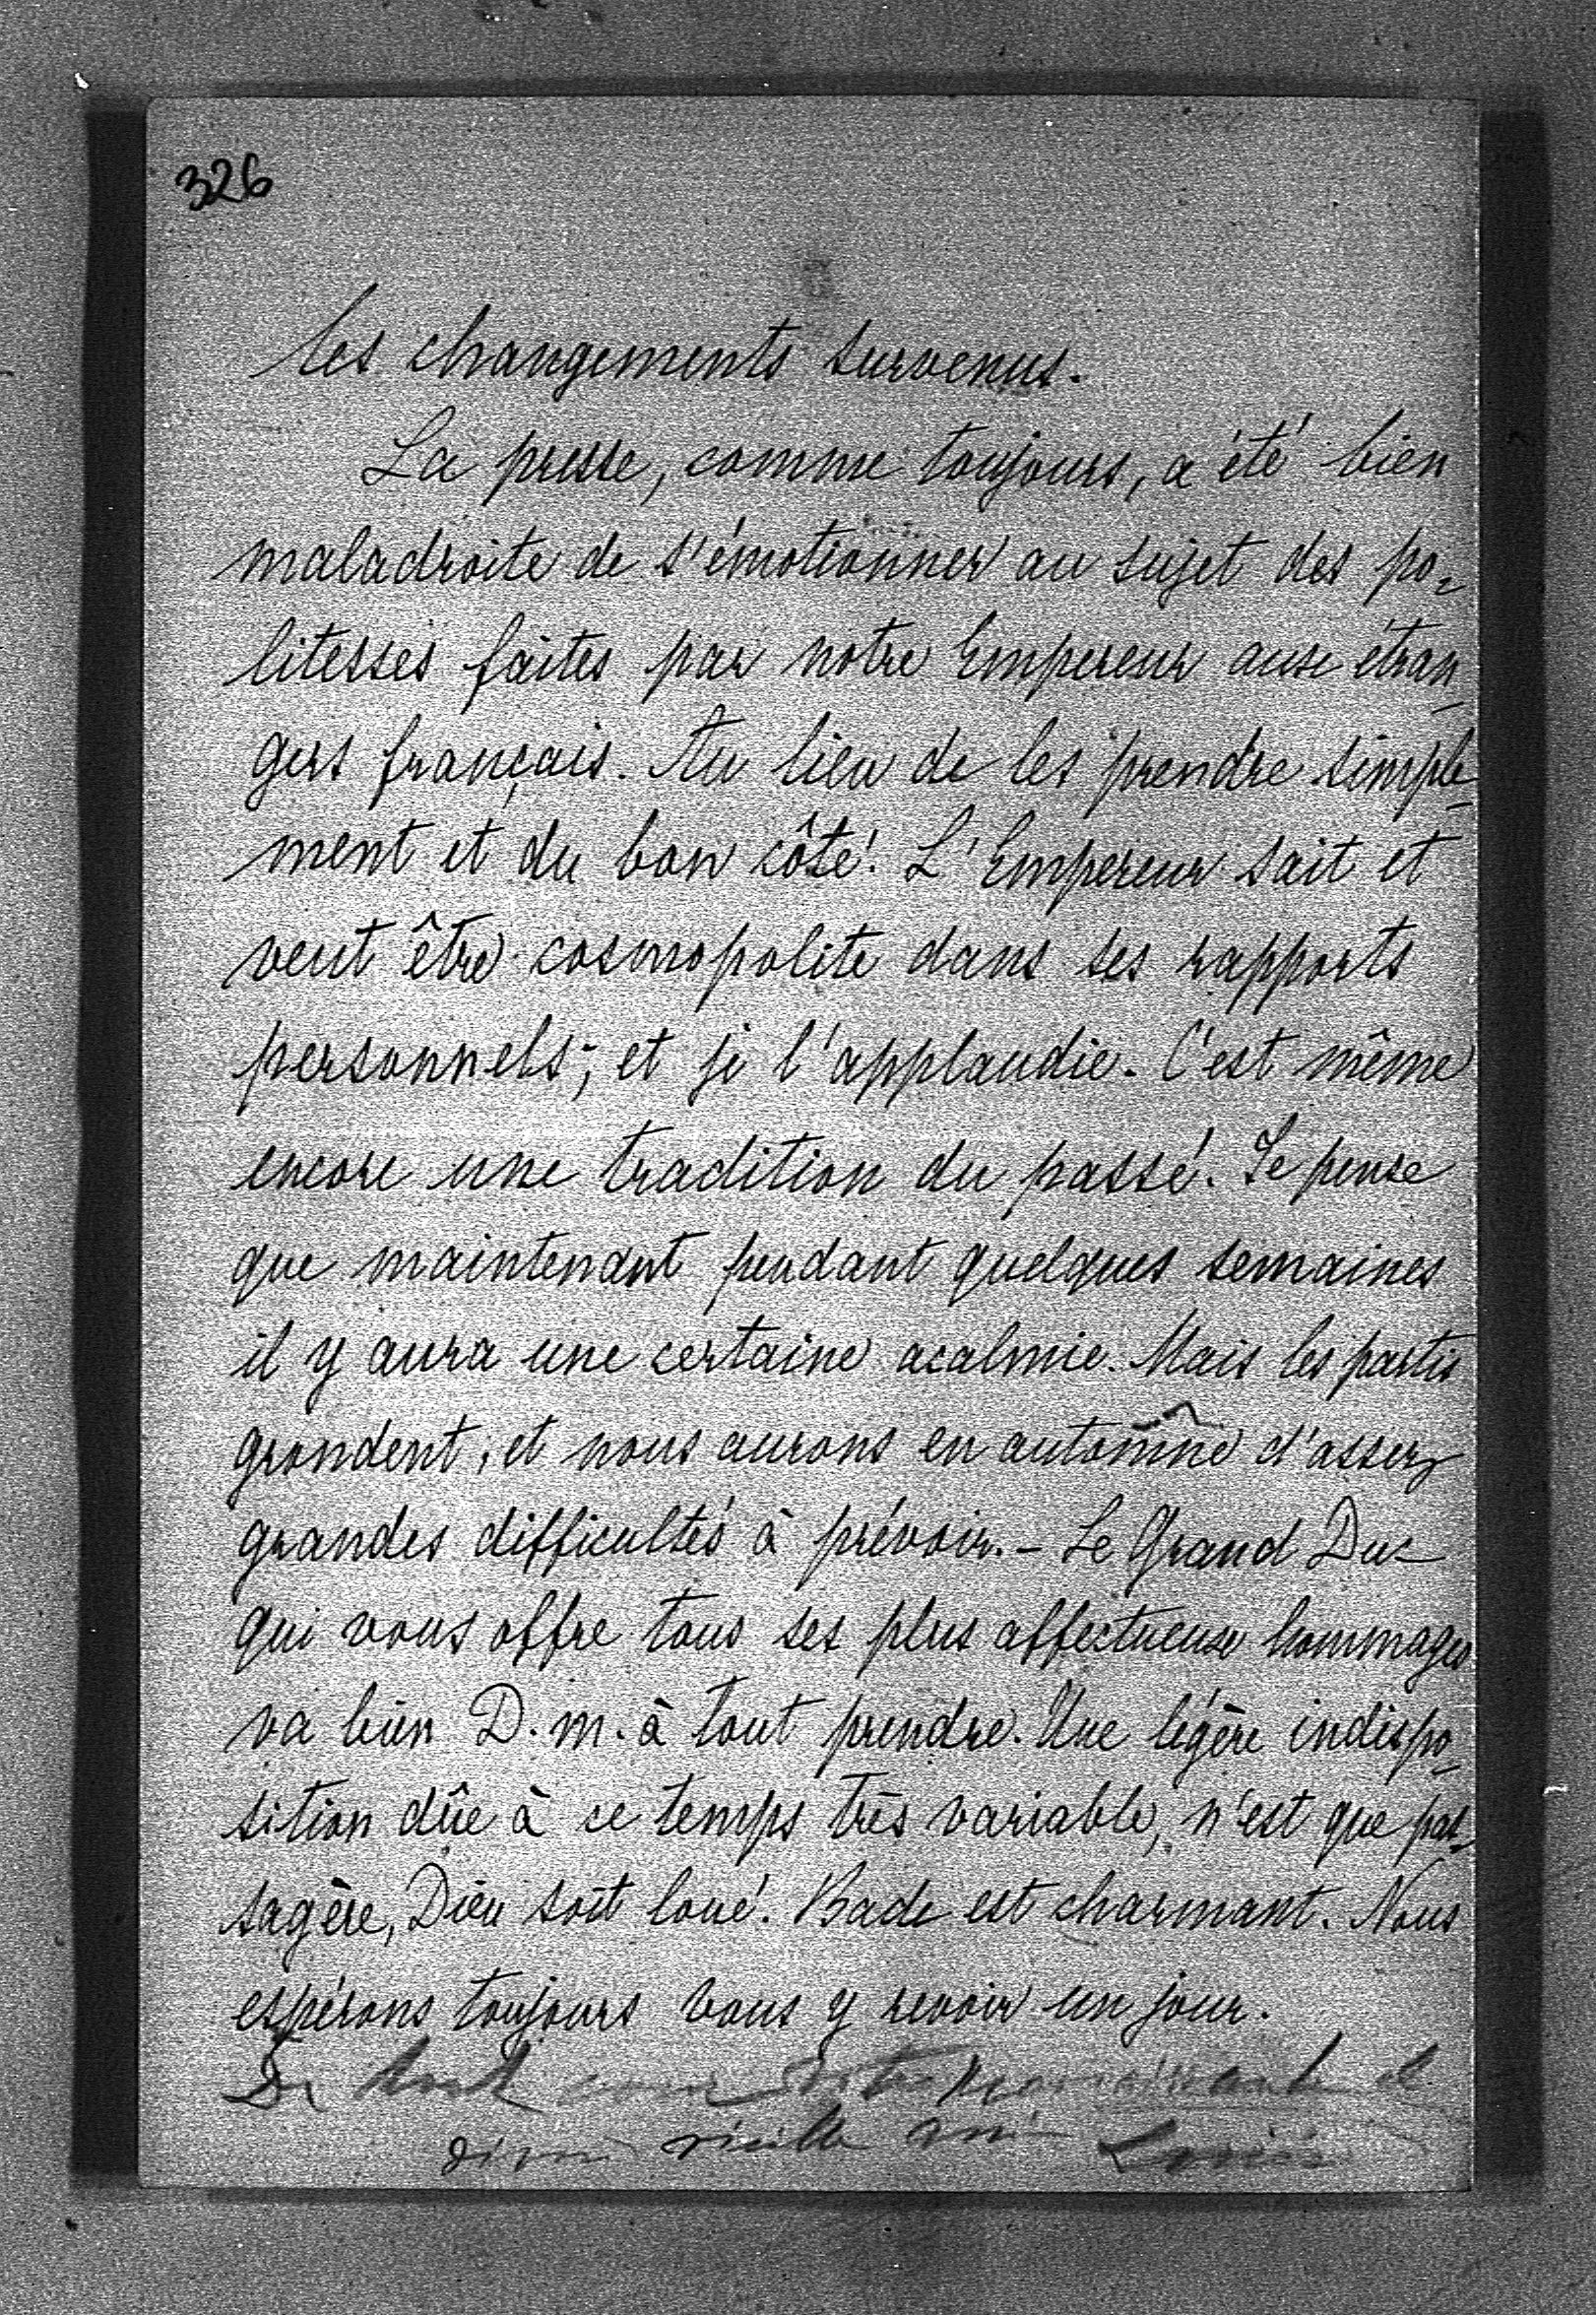 326
les changements survenus.
La presse, comme toujours, a été bien
maladroite de s'émotionner au sujet des po-
litesses faites par notre Empereur aux étran-
gers français. Au lieu de les prendre simple-
ment et du bon côté! L'Empereur sait et
veut être cosmopolite dans ses rapports
personnels; et je l'applaudie. C'est même
encore une tradition du passé. Je pense
que maintenant pendant quelques semaines
il y aura une certaine acalmie. Mais les partis
grondent, et nous aurons en automne d'assez
grandes difficultés à prévoir. - Le Grand Duc
qui vous offre tous ses plus affectueux hommages
va bien D. m. à tout prendre. Une légère indispo-
sition dûe à ce temps très variable, n'est que pas-
sagère, Dieu soit loué! Bade est charmant. Nous
espérons toujours vous y revoir un jour.
De votre
vieille amie Louise